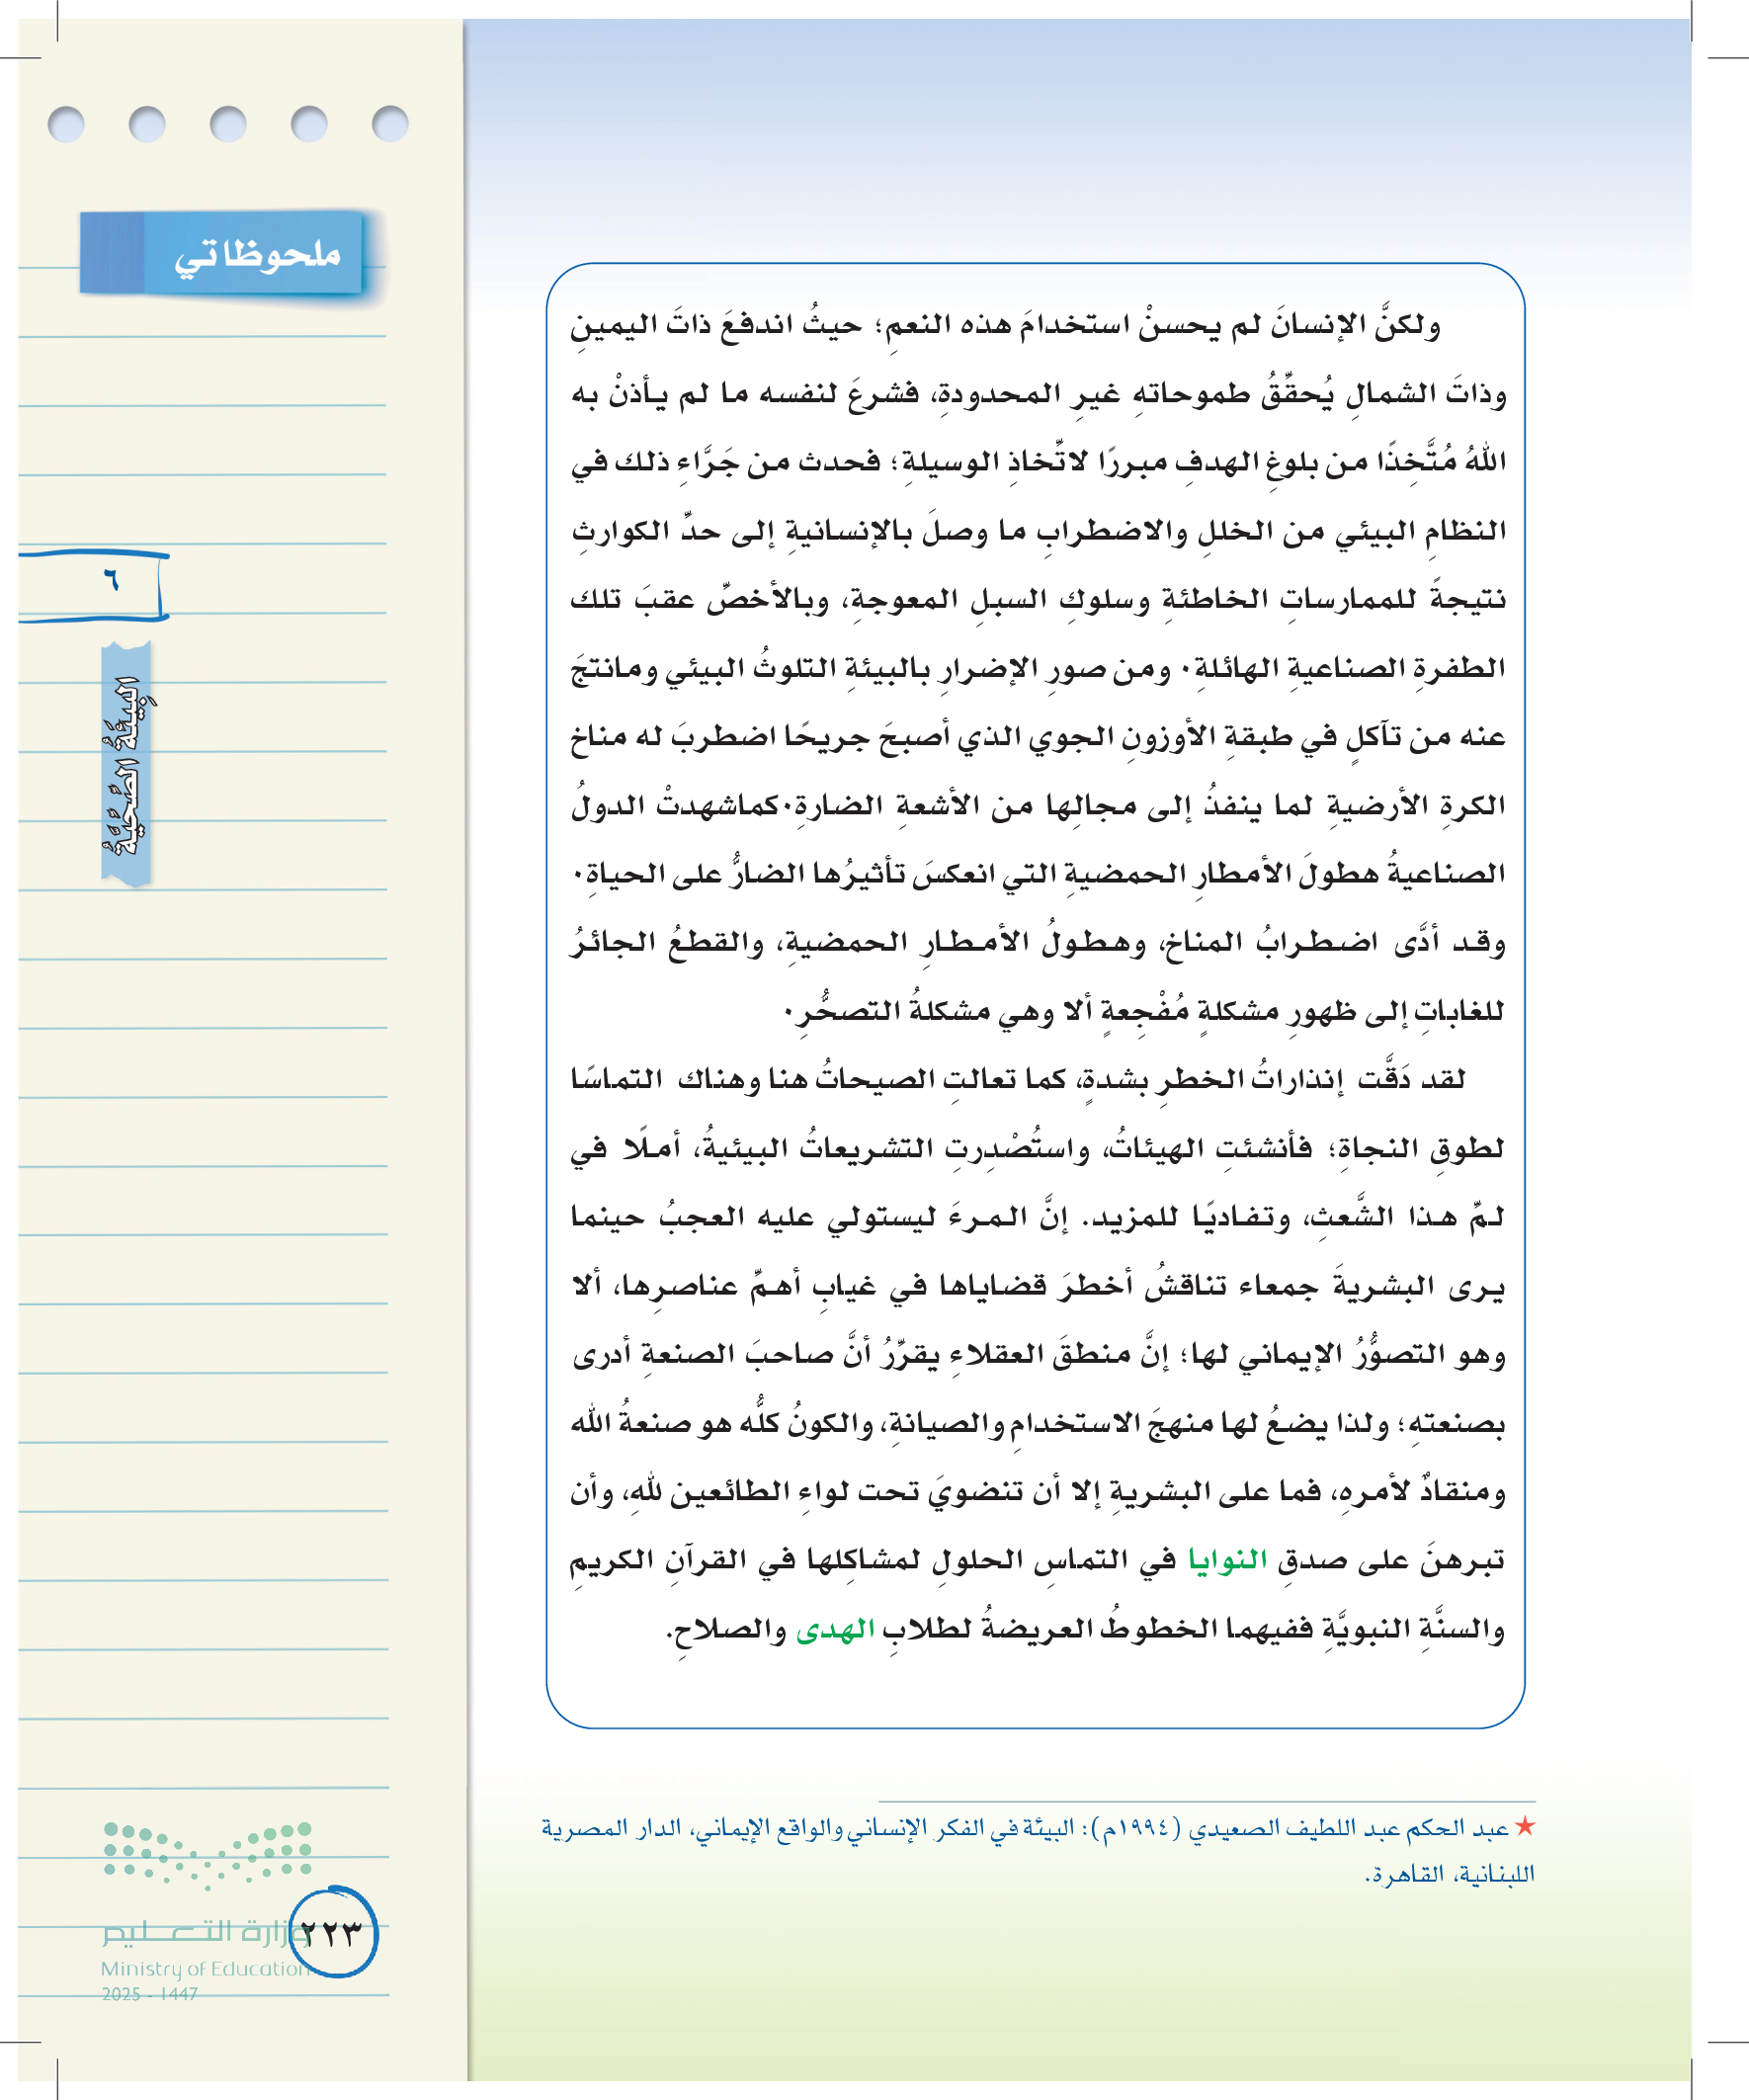 ولكنَّ الإنسانَ لم يحسنْ استخدامَ هذه النعمِ؛ حيثُ اندفعَ ذاتَ اليمينِ
وذاتَ الشمالِ يُحقِّقُ طموحاتهِ غيرِ المحدودةِ، فشرعَ لنفسه ما لم يأذنْ به
اللهُ مُتَّخِذًا من بلوغِ الهدفِ مبررًا لاتِّخاذِ الوسيلةِ؛ فحدث من جَرَّاءِ ذلك في
النظامِ البيئي من الخللِ والاضطرابِ ما وصلَ بالإنسانيةِ إلى حدِّ الكوارثِ
نتيجةً للممارساتِ الخاطئةِ وسلوكِ السبلِ المعوجةِ، وبالأخصِّ عقبَ تلك
الطفرةِ الصناعيةِ الهائلةِ. ومن صورِ الإضرارِ بالبيئةِ التلوثُ البيئي ومانتجَ
عنه من تآكلٍ في طبقةِ الأوزونِ الجوي الذي أصبحَ جريحًا اضطربَ له مناخ
الكرةِ الأرضيةِ لما ينفذُ إلى مجالِها من الأشعةِ الضارةِ.كماشهدتْ الدولُ
الصناعيةُ هطولَ الأمطارِ الحمضيةِ التي انعكسَ تأثيرُها الضارُّ على الحياةِ.
وقد أدَّى اضطرابُ المناخِ، وهطولُ الأمطارِ الحمضيةِ، والقطعُ الجائرُ
للغاباتِ إلى ظهورِ مشكلةٍ مُفْجِعةٍ ألا وهي مشكلةُ التصحُّرِ.
لقد دَقَّت إنذاراتُ الخطرِ بشدةٍ، كما تعالتِ الصيحاتُ هنا وهناك التماسًا
لطوقِ النجاةِ؛ فأنشئتِ الهيئاتُ، واستُصْدِرتِ التشريعاتُ البيئيةُ، أملًا في
لمِّ هذا الشَّعثِ، وتفاديًا للمزيد. إنَّ المرءَ ليستولي عليه العجبُ حينما
يرى البشريةَ جمعاء تناقشُ أخطرَ قضاياها في غيابِ أهمِّ عناصرِها، ألا
وهو التصوُّرُ الإيماني لها؛ إنَّ منطقَ العقلاءِ يقرِّرُ أنَّ صاحبَ الصنعةِ أدرى
بصنعتهِ؛ ولذا يضعُ لها منهجَ الاستخدامِ والصيانةِ، والكونُ كلُّه هو صنعةُ الله
ومنقادٌ لأمرهِ، فما على البشريةِ إلا أن تنضويَ تحت لواءِ الطائعين للهِ، وأن
تبرهنَ على صدقِ النوايا في التماسِ الحلولِ لمشاكِلها في القرآنِ الكريمِ
والسنَّةِ النبويَّةِ ففيهما الخطوطُ العريضةُ لطلابِ الهدى والصلاحِ.
★ عبد الحكم عبد اللطيف الصعيدي (١٩٩٤م): البيئة في الفكر الإنساني والواقع الإيماني، الدار المصرية
اللبنانية، القاهرة.
ملحوظاتي
٦
البِيئَةُ الصِّحِّيَّةُ
وزارة التعليم
٢٢٣
Ministry of Education
2025 - 1447